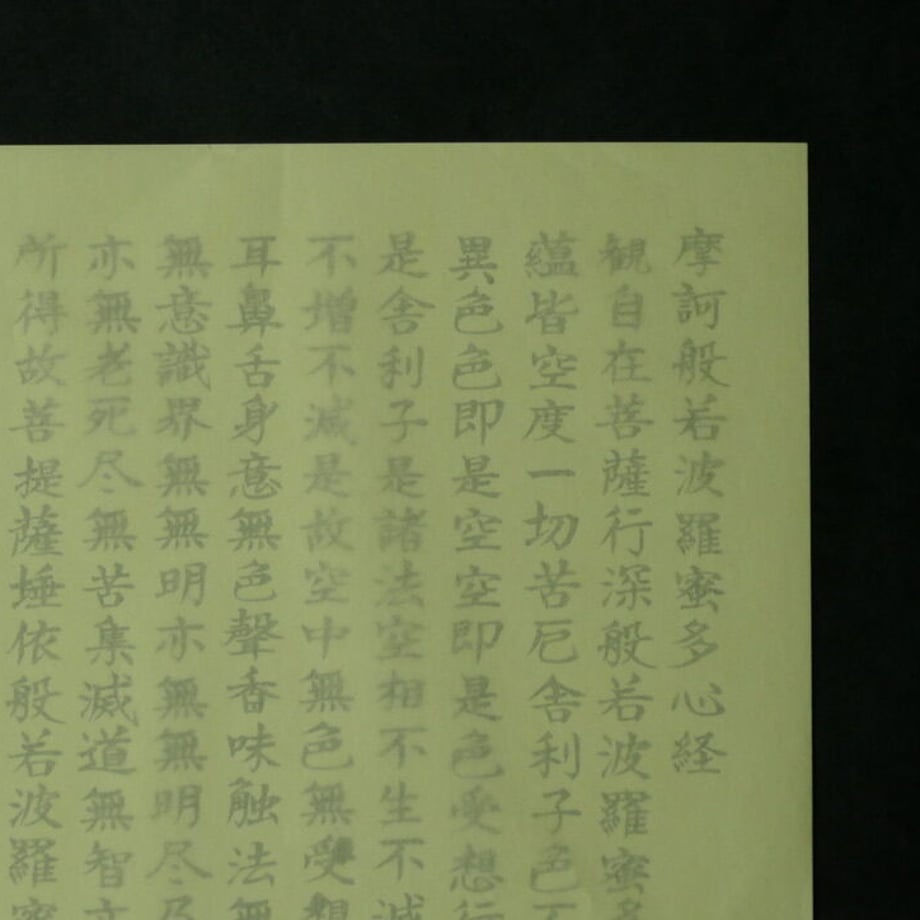 摩訶般若波羅蜜多心経
観自在菩薩行深般若波羅蜜多
蘊皆空度一切苦厄舎利子色不
異色色即是空空即是色受想行
是舎利子是諸法空相不生不滅
不増不減是故空中無色無受想
耳鼻舌身意無色聲香味触法無
無意識界無無明亦無無明尽乃
亦無老死尽無苦集滅道無智亦
所得故菩提薩埵依般若波羅蜜